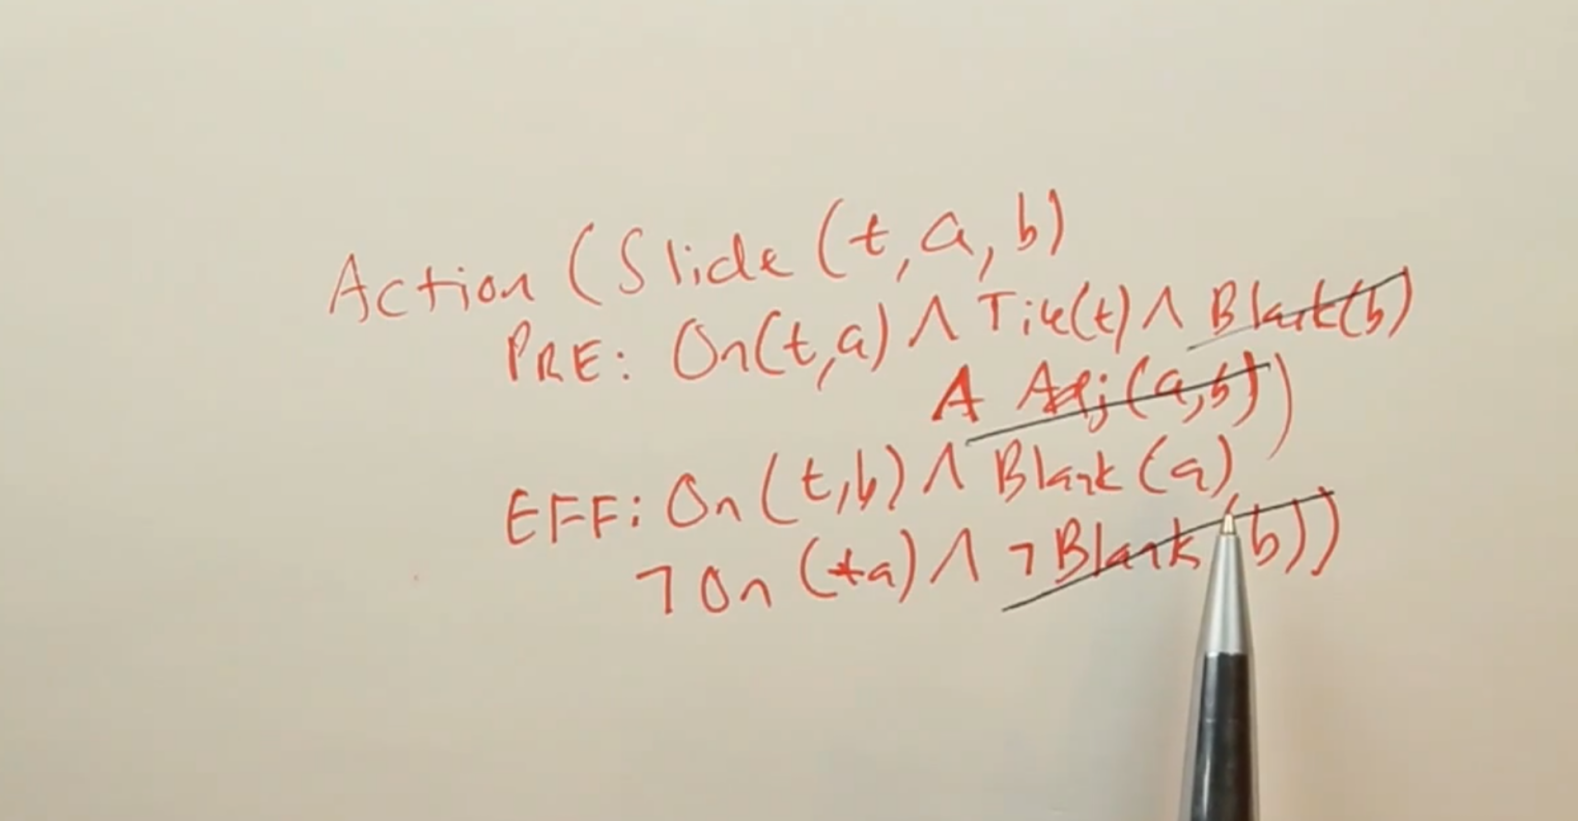 Action (Slide (t, a, b)
PRE: On(t,a) ∧ Tile(t) ∧ Blank(b)
∧ Adj(a,b))
EFF: On(t,b) ∧ Blank(a)
¬On(ta) ∧ ¬Blank(b))